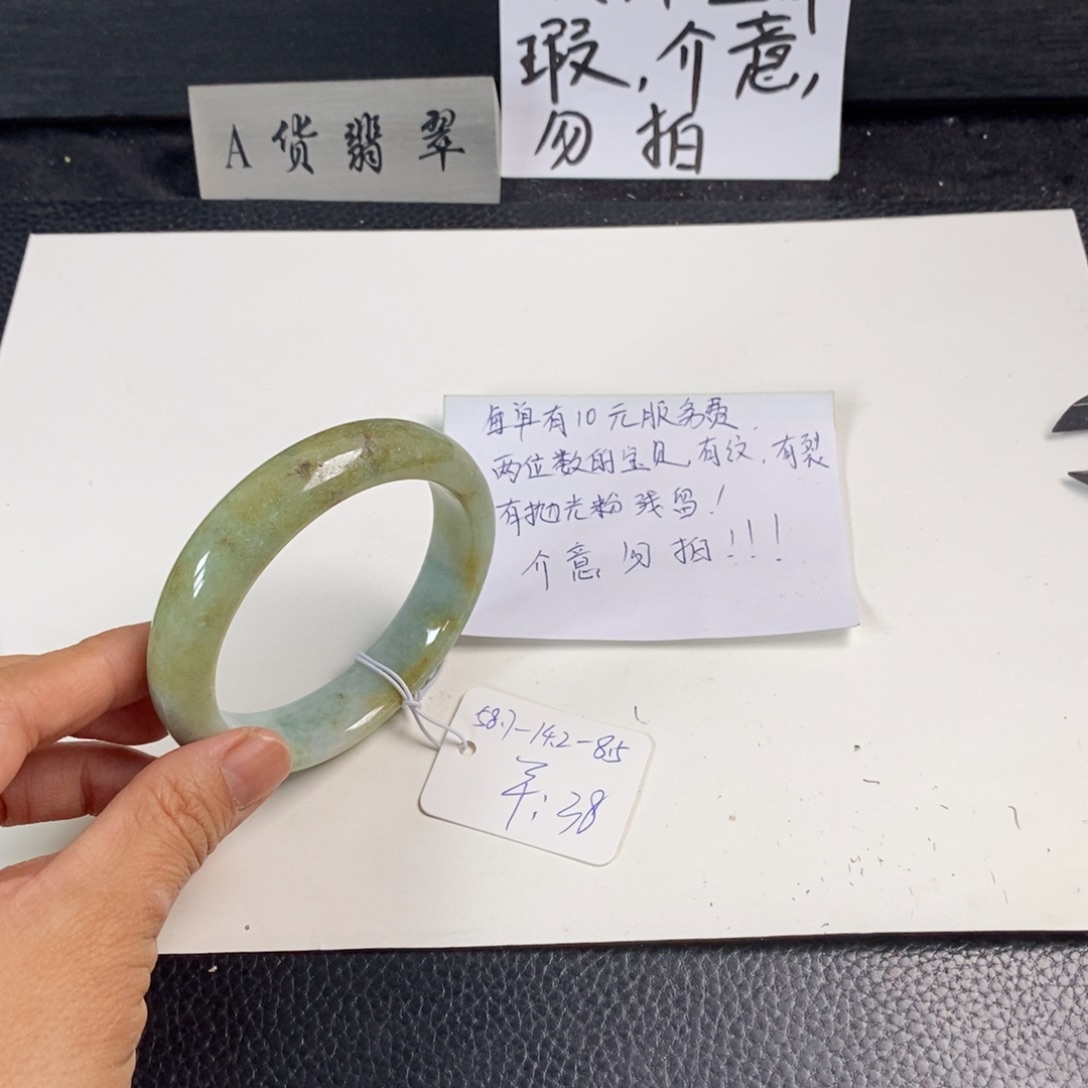 瑕,介意,
勿 拍
A 货 翡 翠
每单有10元服务费.
两位数的宝贝,有纹,有裂
有抛光粉残留!
介意 勿 拍!!!
58.7-14.2-8.5
羊:38